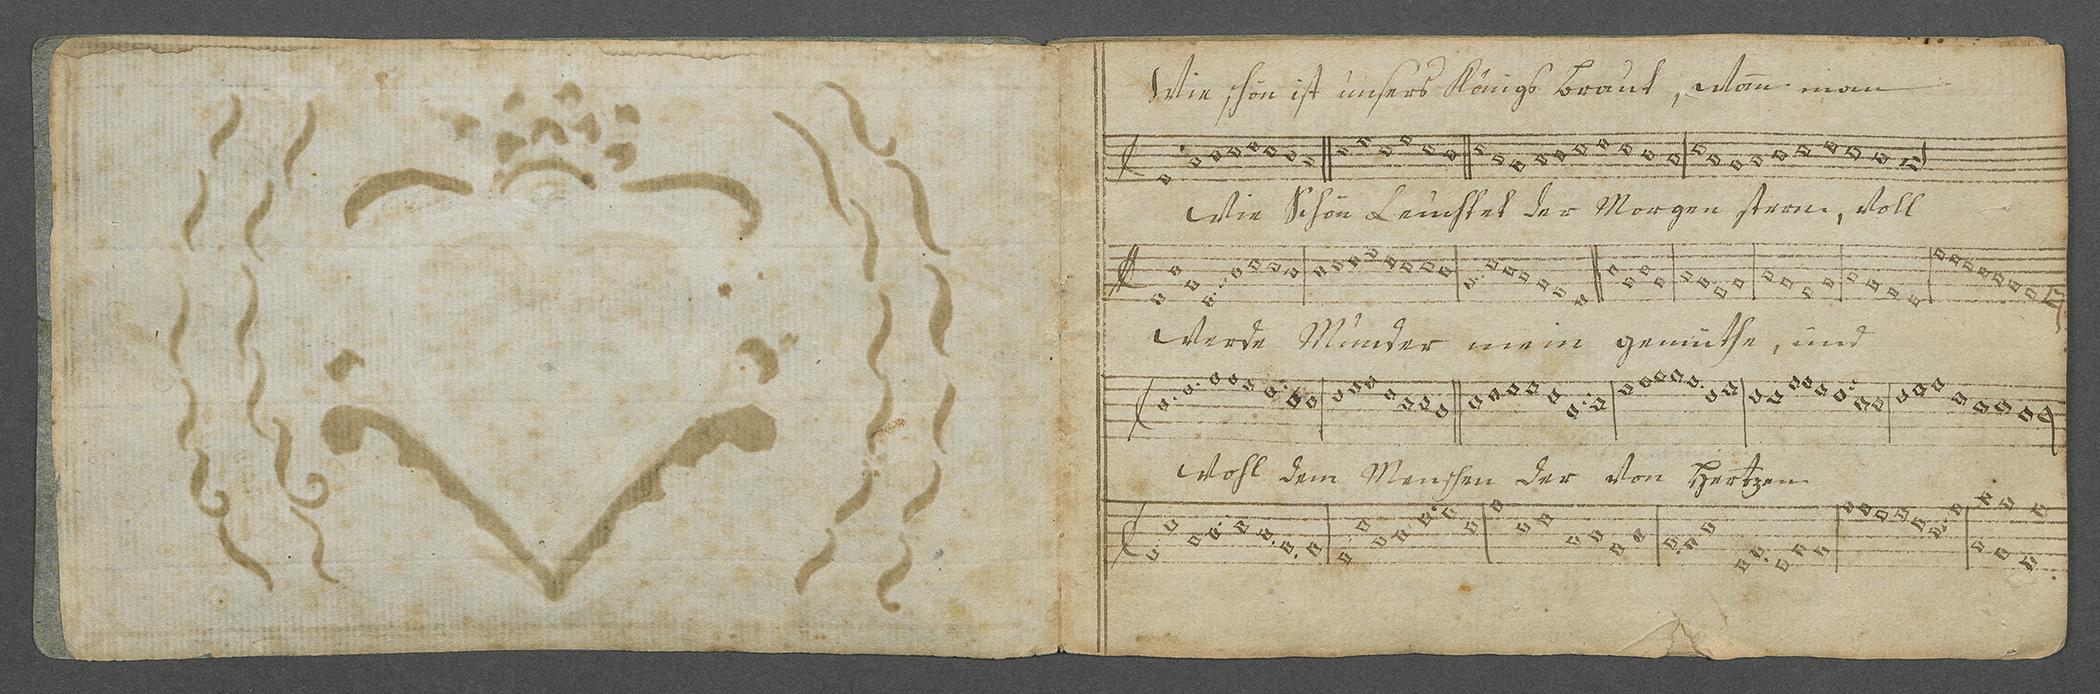 Wie schön ist unsers Königs Braut, Wan̄ man
Wie Schön Leuchtet der Morgen stern, Voll
Werde Munder mein gemüthe, und
Wohl dem Menschen der von Hertzen